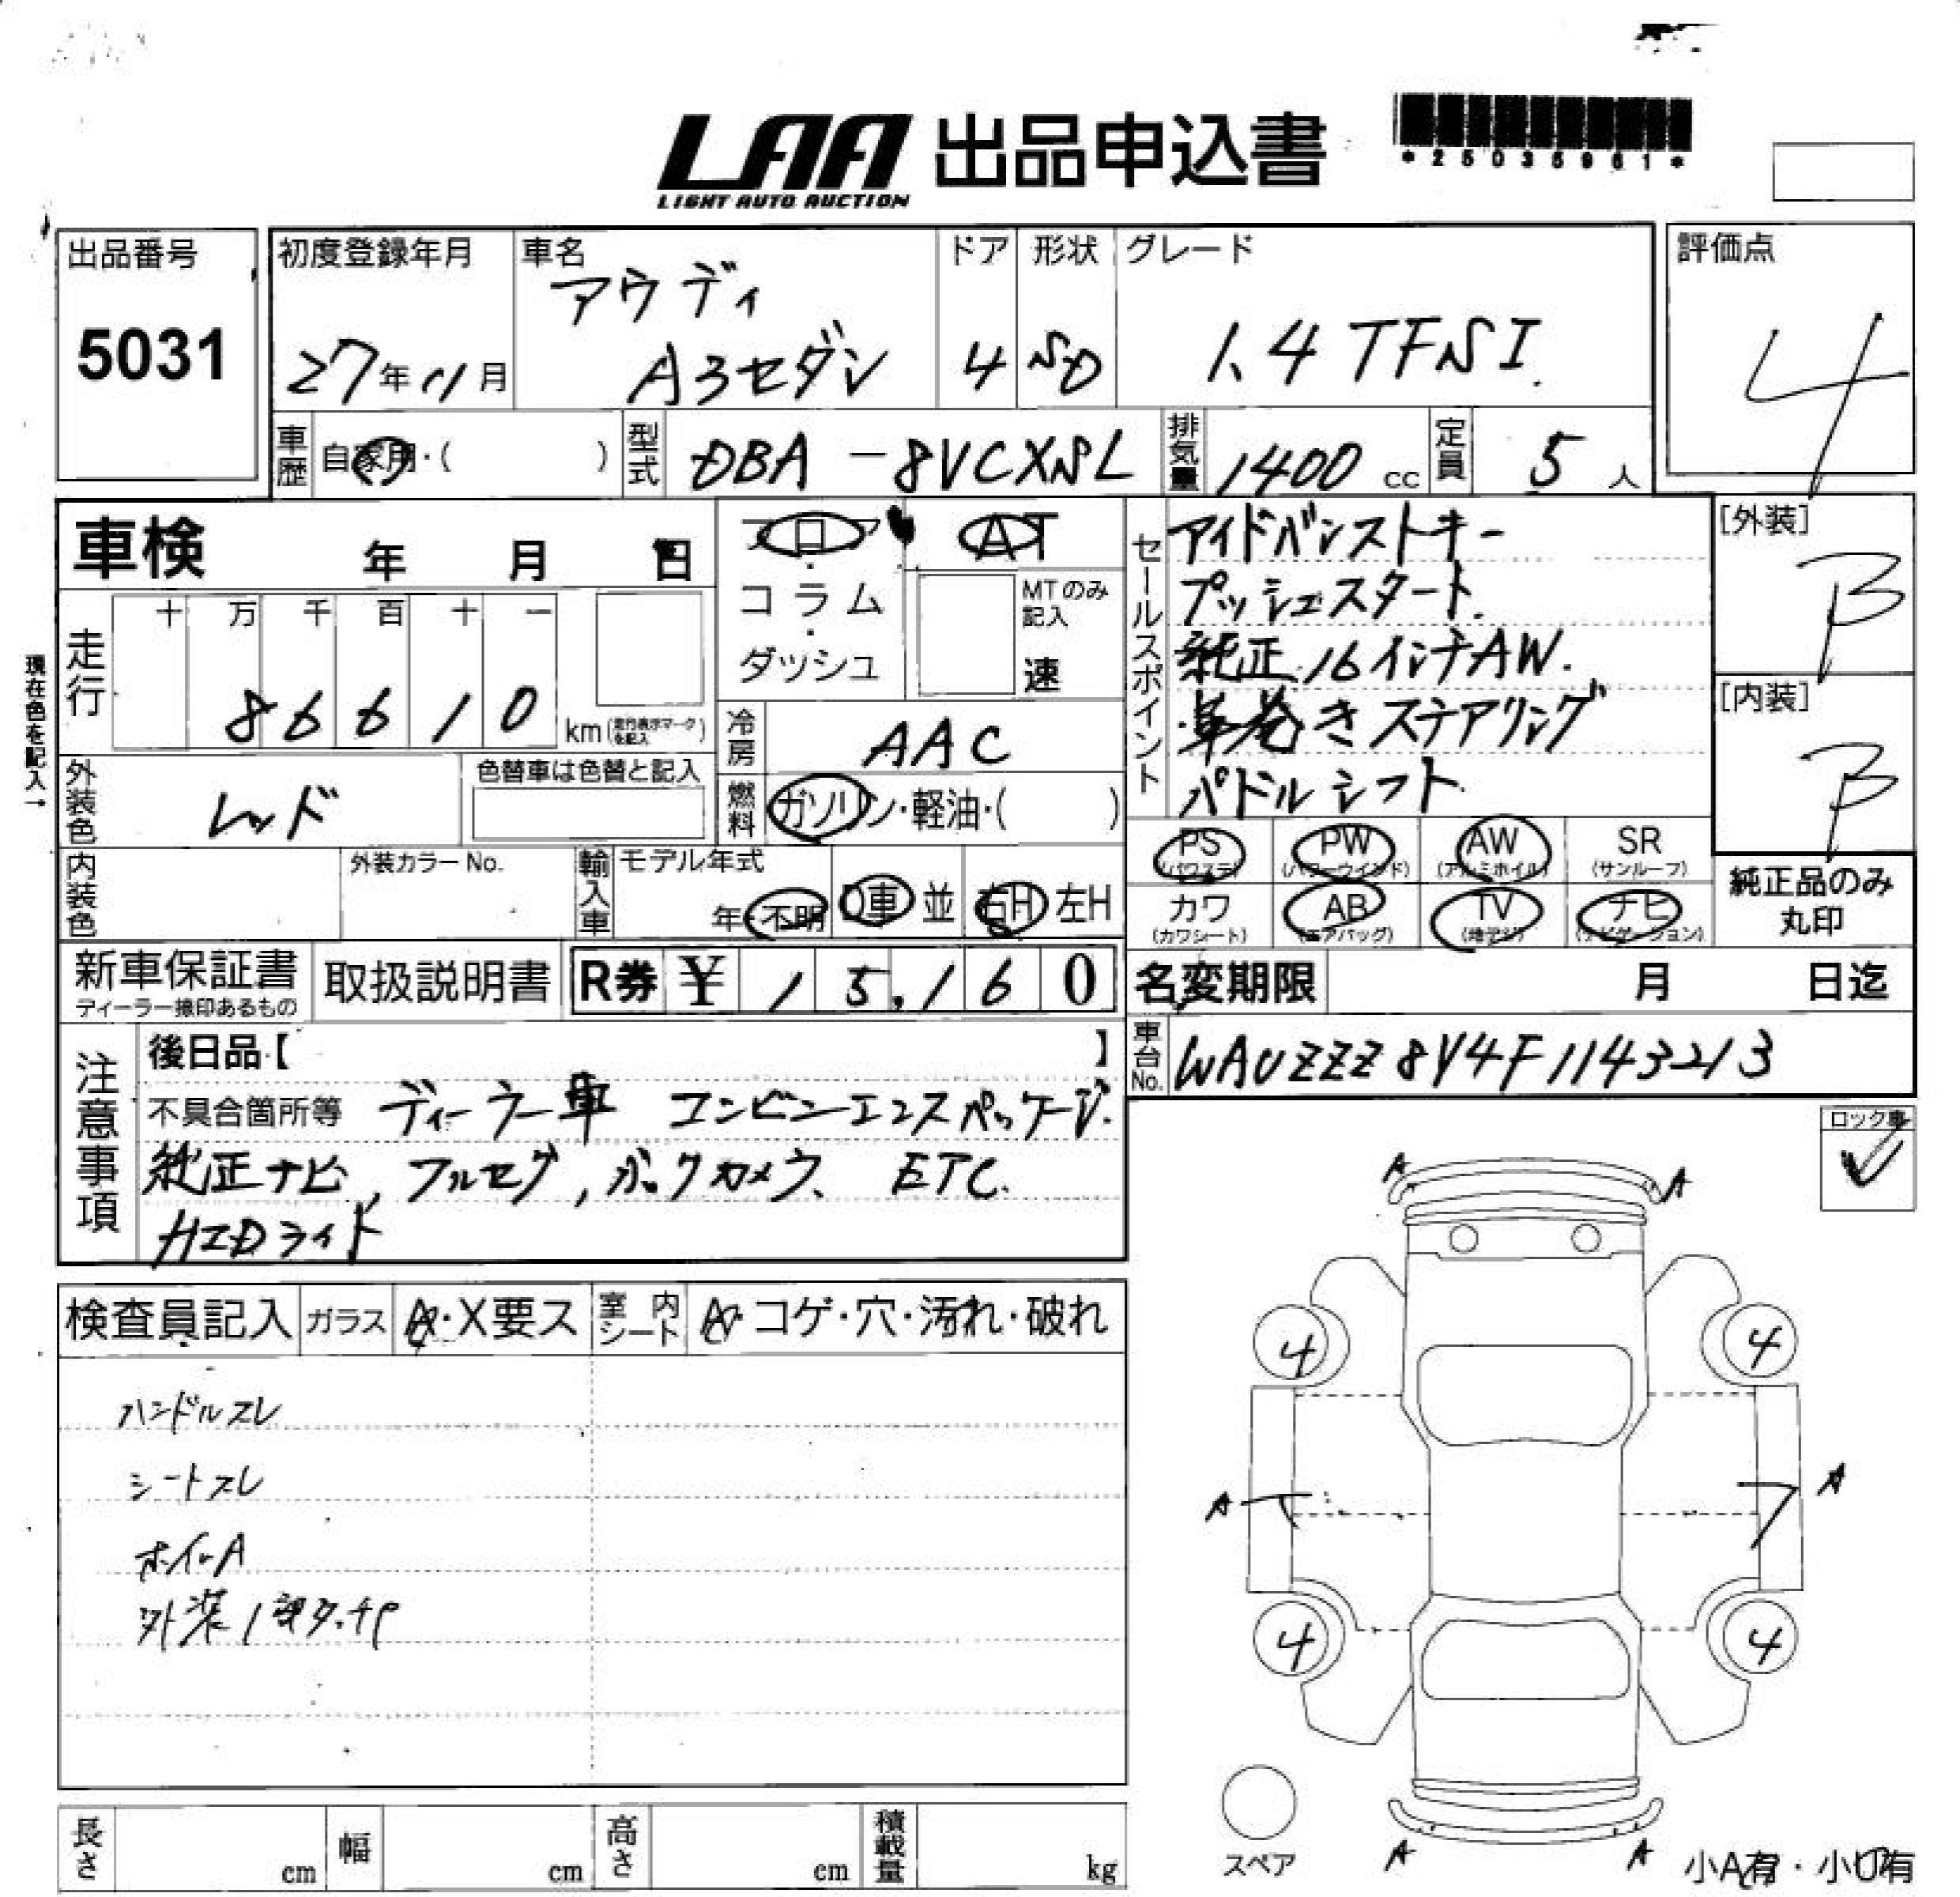 LAA 出品申込書
LIGHT AUTO AUCTION
*25035961*
出品番号
5031
初度登録年月
27年 11月
車名
アウディ
A3セダン
ドア
4
形状
SD
グレード
1.4 TFSI.
評価点
4
車歴
自家用・( )
型式
DBA-8VCXSL
排気量
1400 cc
定員
5 人
車検 年 月 日
フロア・コラム・ダッシュ
AT
MTのみ記入
速
セールスポイント
アイドバンストキー
プッシュスタート.
純正 16インチAW.
革巻きステアリング
パドルシフト
[外装]
B
[内装]
B
現在色を記入→
走行
十 万 千 百 十 一
8 6 6 1 0
km
冷房
AAC
燃料
ガソリン・軽油・( )
外装色
レッド
色替車は色替と記入
内装色
外装カラーNo.
輸入車
モデル年式
年・不明
D車 並
右H 左H
PS
(パワステ)
PW
(パワーウインド)
AW
(アルミホイル)
SR
(サンルーフ)
カワ
(カワシート)
AB
(エアバッグ)
TV
(地デジ)
ナビ
(ナビゲーション)
純正品のみ
丸印
新車保証書
ディーラー捺印あるもの
取扱説明書
R券 ¥ 15,160
名変期限 月 日迄
車台No.
WAUZZZ8V4F1143213
注意事項
後日品【 】
不具合箇所等 ディーラー車 コンビニエンスパッケージ.
純正ナビ, フルセグ, バックカメラ、 ETC.
HIDライト
ロック車
✓
検査員記入
ガラス
A・X要ス
室内シート
A・コゲ・穴・汚れ・破れ
ハンドルスレ
シートスレ
ホイールA
外装1部タッチP
A A
4 4
A A
4 4
スペア
A A
小A有・小U有
長さ cm
幅 cm
高さ cm
積載量 kg